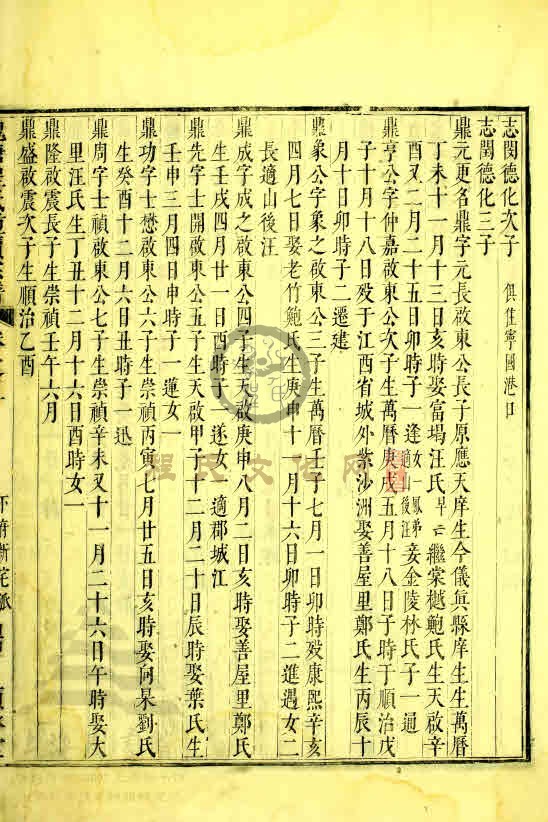 志閔德化次子 俱隹寧國港口
志閏德化三子
鼎元更名鼎字元長啟東公長子原應天庠生今儀眞縣庠生生萬曆
丁未十一月十三日亥時娶富塲汪氏早亡繼棠樾鮑氏生天啟辛
酉又二月二十五日卯時子一逢女鳳弟適山後汪妾金陵林氏子一過
鼎亨公字仲嘉啟東公次子生萬曆庚戌五月十八日子時于順治戊
子十月十八日殁于江西省城外紫沙洲娶善屋里鄭氏生丙辰十
月十日卯時子二遷建
鼎象公字象之啟東公三子生萬曆壬子七月一日卯時殁康熙辛亥
四月七日娶老竹鮑氏生庚申十一月十六日卯時子二進遇女二
長適山後汪
鼎成字成之啟東公四子生天啟庚申八月二日亥時娶善屋里鄭氏
生壬戌四月廿一日酉時子一遂女一適郡城江
鼎先字士開啟東公五子生天啟甲子十二月二十日辰時娶葉氏生
壬申三月四日申時子一蓮女一
鼎功字士懋啟東公六子生崇禎丙寅七月廿五日亥時娶向杲劉氏
生癸酉十二月六日丑時子一迅
鼎周字士禎啟東公七子生崇禎辛未又十一月二十六日午時娶大
里汪氏生丁丑十二月十六日酉時女一
鼎隆啟震長子生崇禎壬午六月
鼎盛啟震次子生順治乙酉
程氏文化网